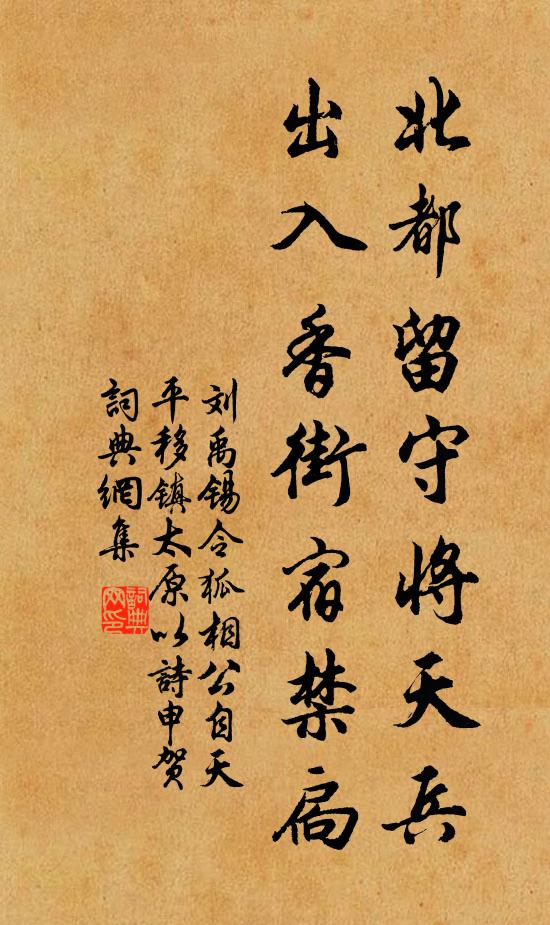 北都留守将天兵
出入香街宿禁扃
刘禹锡令狐相公自天
平移镇太原以詩申贺
詞典網集
詞典网印